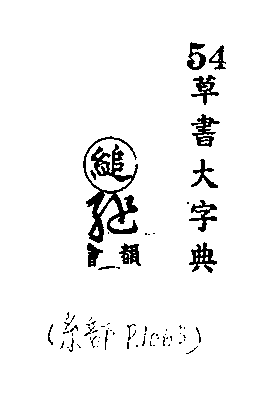 54
草書大字典
縋
韻會
(糸部 P.1063)